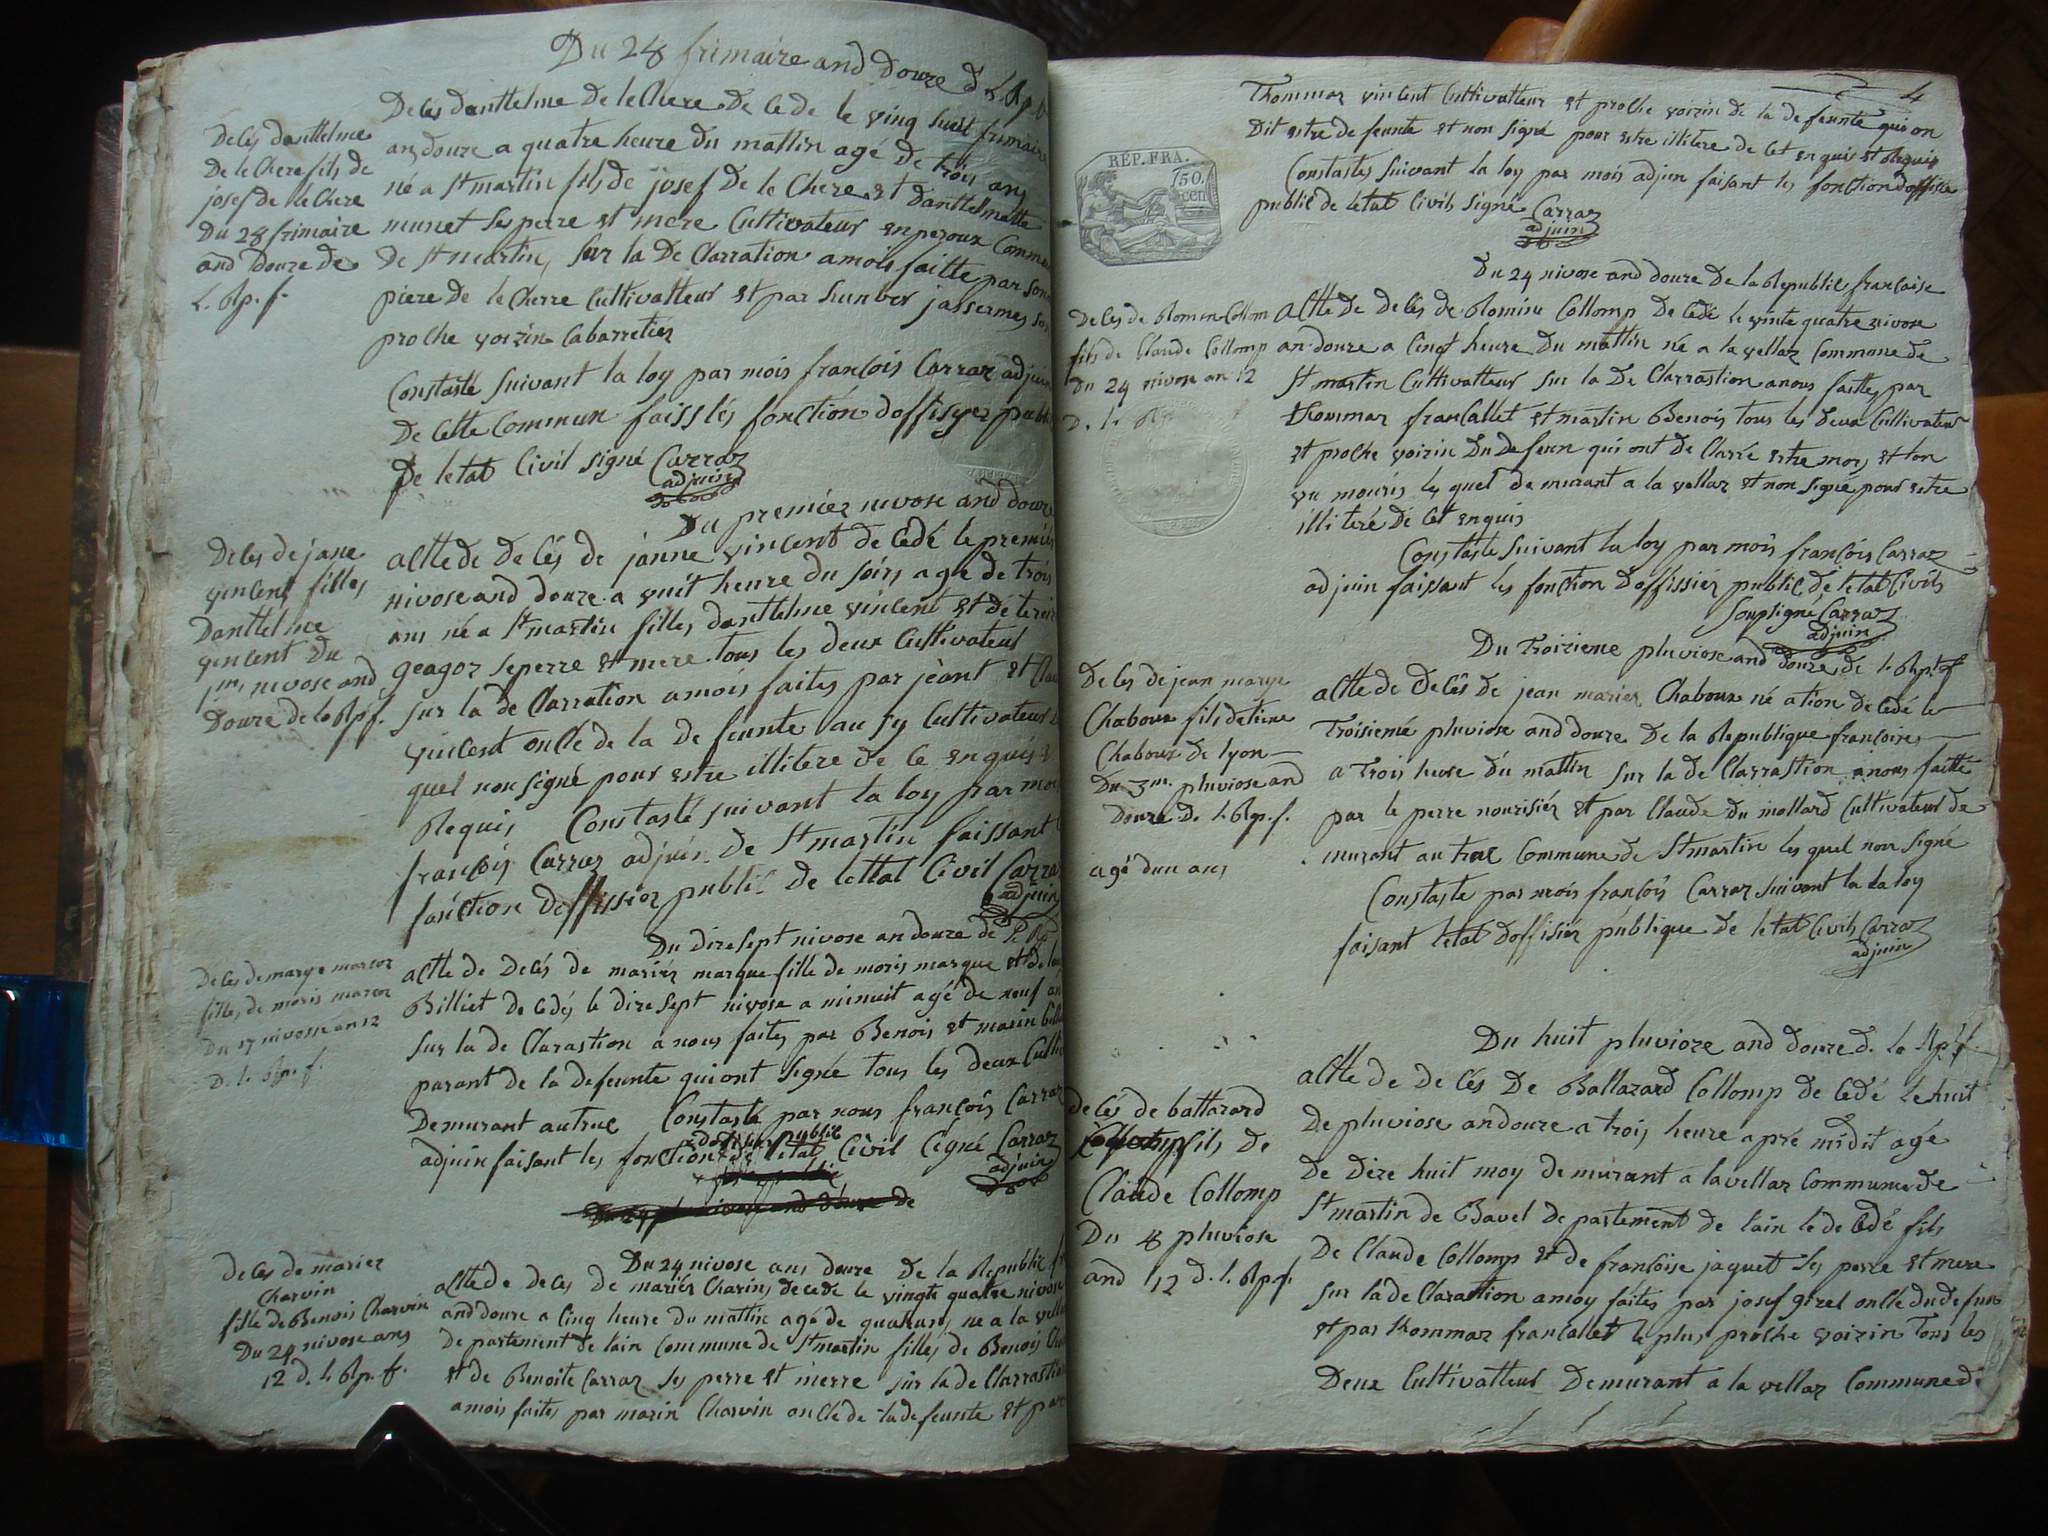 Du 28 frimaire and douze d L Rp
Decés danttelme
De le Chere fils de
josef de le Chere
Du 28 frimaire
and Douze de
L. Rp. f.
Deces danttelme De le Chere De Cede le ving huit frimaire
an douze a quatre heure du mattin agé De trois ans
né a St martin fils de josef De le Chere et Danttelmatte
munet Ses pere et mere Cultivateur en peroux Commune
De St martin, Sur la De Clarration a mois faitte par son
piere de le Cherre Cultivatteur et par humber jassermes son
proche voizin Cabarretier
Constasté Suivant la loy par mois françois Carraz adjuin
De Cette Commun faiss lés fonction doffisyer public
De letat Civil Signé Carraz
adjuin
Du premier nivose and douze
Deces de jane
vincent filles
Danttelme
vincent Du
1er nivose and
Douze de la Rp f.
altte de De Cés de janne vincent de Cédé le premier
nivose and douze a vuit heure du soirs agé de trois
ans né a St martin filles danttelme vincent et dé
geagoz seperre et mere tous les deux Cultivateur
Sur la de Clarration a mois faites par jéant et Clau
vincent oncle de la de feunte au sy Cultivateur
quel non signé pour estre illitere de Ce enquis et
Requis Constasté suivant la loy par moy
françois Carraz adjuin de St martin faissant
fonction doffissier public de lettat Civil Carraz
adjuin
Du dizesept nivose an douze de L Rp
Déces de marye marcoz
filles de moris marcoz
Du 17 nivosse an 12
D. l. Rp. f.
altte de Decés de mariés marque fille de moris marque et de
Billiet de Cedés le dize sept nivose a minuit agé de neuf an
Sur la de Clarastion a nous faites par Benois et marin
parant de la defeunte qui ont Signé tous les deux Culti
Demurant autruc Constasté par nous françois Carraz
doffisier public
adjuin faisant les fonction de letat Civil Cégné Carraz
adjuin
Du 24 nivose and douze de
Du 24 nivose ans douze de la Republic f
Deces de marier
Charvin
fille de Benois Charvin
Du 24 nivose ans
12 D. l. Rp. f.
altte de deces de mariés Charins decede le vingte quatre nivose
and douze a Cinq heure du mattin agé de ne a la vellaz
de partement de lain Commune de St martin filles de Benois
et de Benoite Carraz Ses perre et merre Sur la de Clarrastion
a mois faites par marin Charvin oncle de la de feunte et par
4
REP. FRA.
50
cen
Thommaz vincent Cultivatteur et proche voizin de la defeunte qui on
Dit estre de feunte et non Signé pour estre illitere de Cet enquis et Requis
Constastés Suivant la loy par mois adjuin faisant les fonction doffisie
public de létat Civils Signé Carraz
adjuin
Du 24 nivose and douze de la Republic française
De Ces de Romin Collomp
fils de Claude Collomp
Du 24 nivose an 12
D. l. Rp
Altte de de Cés de Romine Collomp De Cédé le vinte quatre nivose
an douze a Cinqt heure Du mattin né a la vellaz Commune de
St martin Cultivatteur Sur la De Clarrastion a nous faitte par
thommaz francallet et martin Benois tous les deux Cultivateur
et proche voizin Du de feun qui ont de Clarré estre mort et lon
vu mouris les quel de murant a la vellaz et non signé pour estre
illiteré de Cet enquis
Constasté suivant la loy par mois françois Carraz
adjuin faissant les fonction doffissier public de létat Civils
Soupsigné Carraz
adjuin
Du Troizieme pluviose and douze de l. Rp. f
De Ces de jean marye
Chaboux fils detiene
Chaboux de lyon
Du 3me pluviose and
Douze De l. Rp. f.
agé dun ans
altte de decês de jean marier Chaboux né a lion de Cédé le
Troisiemé pluviose and douze De la Republique françoise
a trois heure du mattin Sur la de Clarrastion a nous faitte
par le perre nourisier et par Claude du mollard Cultivateur de
murant au truc Commune de St martin les quel non Signé
Constaste par mois françois Carraz suivant la la loy
faisant letat doffisier publique de letat Civils Carraz
adjuin
Du huit pluvioze and douze d. la Rp. f.
de Cés de battazard
Collomp fils de
Claude Collomp
Du 8 pluviose
and 12 d. l. Rp. f.
altte de de Cés De Ballazard Collomp de Cédé le huit
De pluviose an douze a trois heure apré midit agé
De dize huit moy de murant a la vellaz Commune de
St martin de Bavel departement de lain le de Cedé fils
De Claude Collomp et de françoise jaquet Ses perre et mere
Sur la de Clarastion a moy faites par josef girel oncle du defun
et par thommaz francallet le plus proche voizin Tous les
Deux Cultivatteur Demurant a la vellaz Commune de